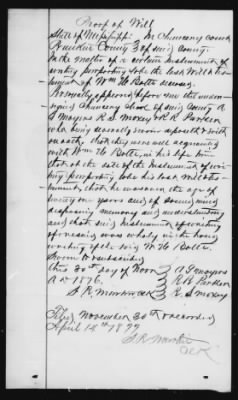 Proof of Will
State of Mississippi In Chancery Court
County of said County
In the matter of a certain Instrument of
writing purporting to be the last Will & testa
ment of Wm H Bolte deceased
Personally appeared before me the under
signed Chancery Clerk of said County A
S Mayers R S Moxey & R R Parker
who being severally sworn deposeth & saith
on oath, that they were well acquainted
with Wm H Bolte, in his life time
that at the date of the Instrument of wri
ting purporting to be his last will & testa
ment, that he was over the age of
twenty one years and of sound mind
disposing memory and understanding
and that said Instrument of writing
was wholly in the hand
writing of the said Wm H Bolte.
Sworn to & subscribed
this 30th day of Novr A S Mayers
AD 1876. R R Parker
S. R. Martin clk R. S. Moxey
Filed November 30th & recorded
April 14th 1877
S. R. Martin
Clk